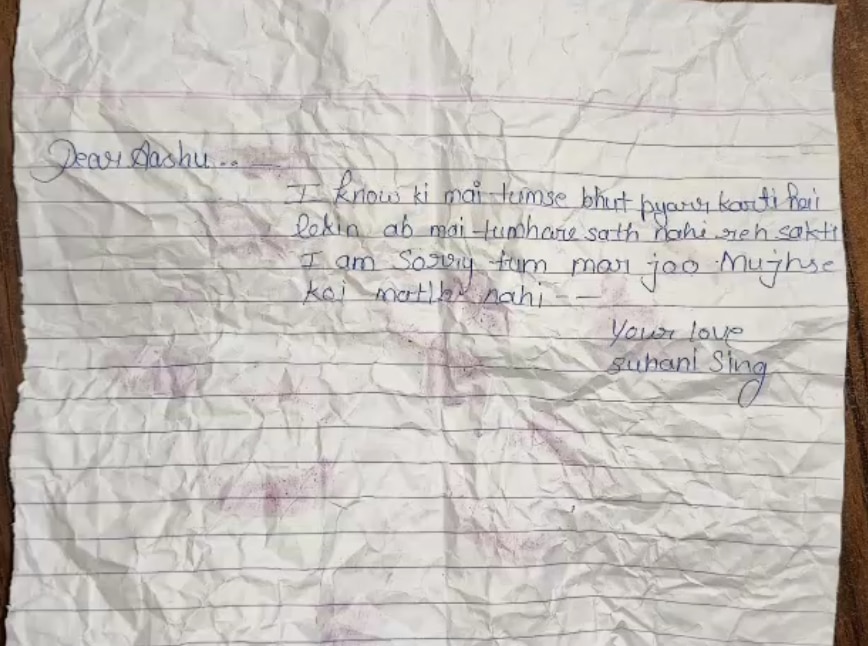 Dear Aashu.. —
I know ki mai tumse bhut pyarr karti hai
lekin ab mai tumhare sath nahi reh sakti
I am Sorry tum mar jao Mujhse
koi matlbk nahi - —
Your love
suhani Sing